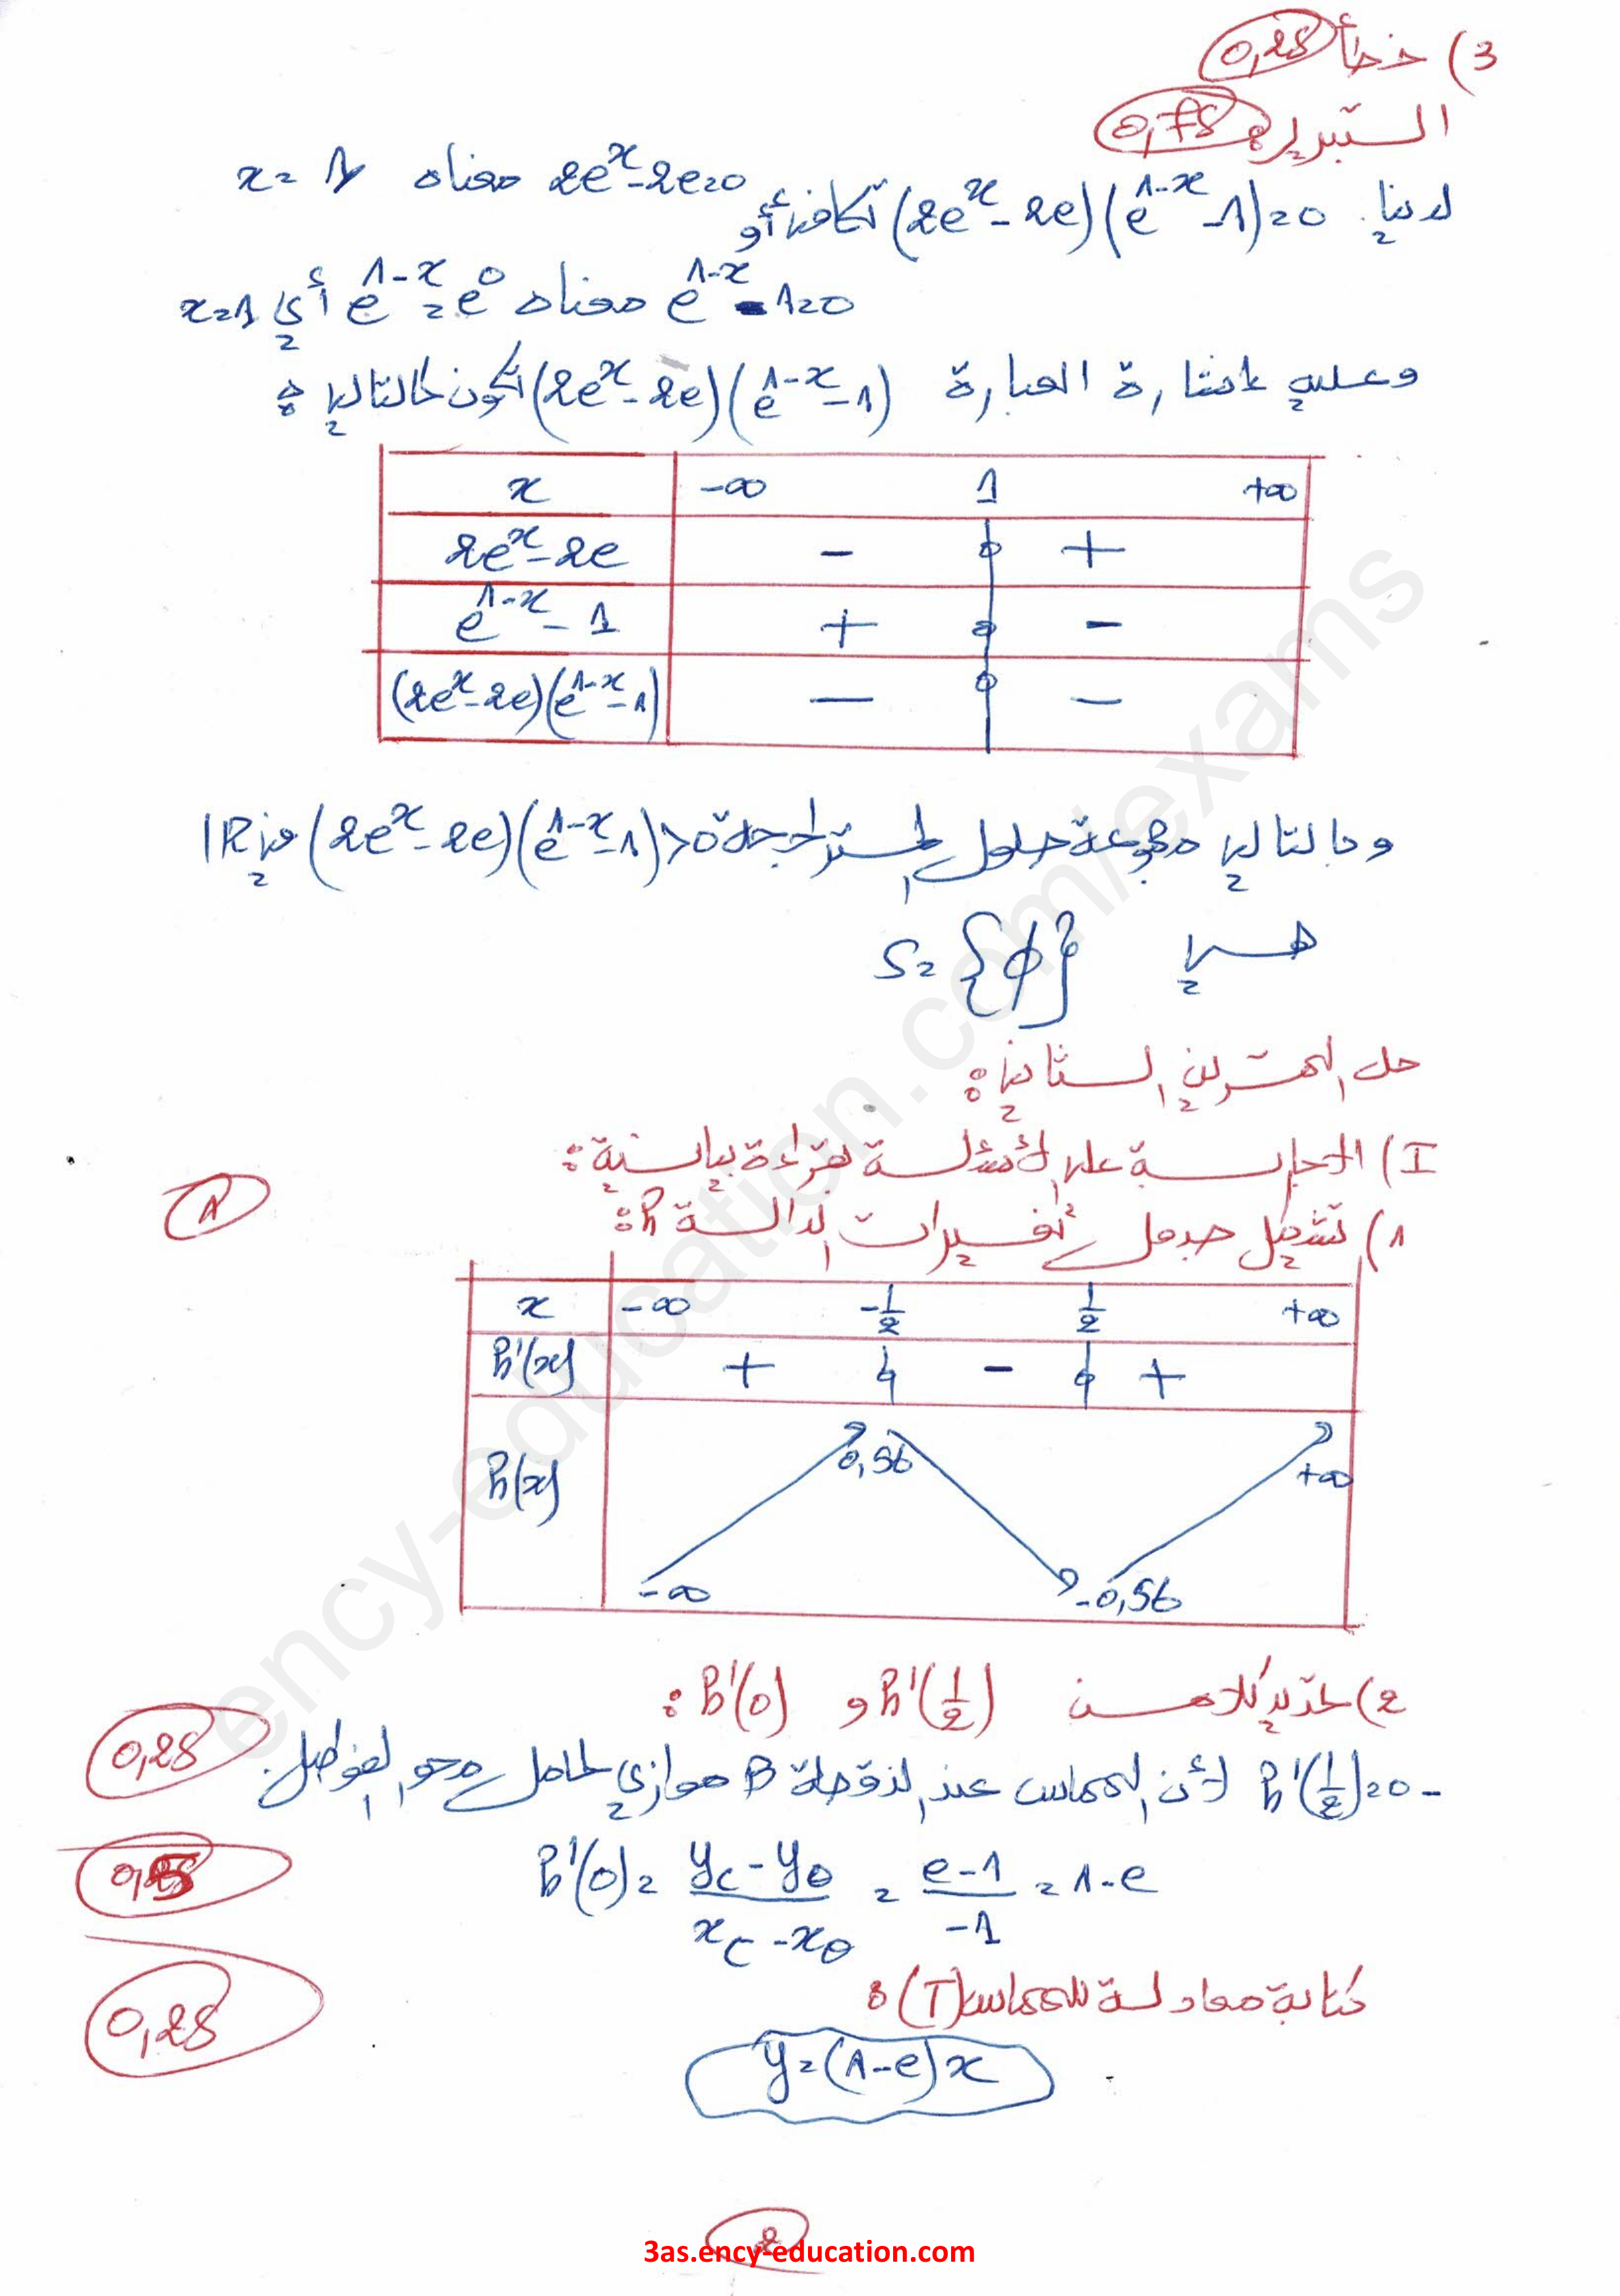 3) خطأ 0,25
التبرير: 0,75
لدينا (2eˣ - 2e)(e¹⁻ˣ - 1) = 0 تكافئ 2eˣ - 2e = 0 معناه x = 1
أو e¹⁻ˣ - 1 = 0 معناه e¹⁻ˣ = e⁰ أي x = 1
وعليه إشارة العبارة (2eˣ - 2e)(e¹⁻ˣ - 1) تكون كالتالي:
x -∞ 1 +∞
2eˣ - 2e - 0 +
e¹⁻ˣ - 1 + 0 -
(2eˣ - 2e)(e¹⁻ˣ - 1) - 0 -
وبالتالي مجموعة حلول المتراجحة (2eˣ - 2e)(e¹⁻ˣ - 1) > 0 في IR
هي S = {∅}
حل التمرين الثاني:
I) الإجابة على الأسئلة بقراءة بيانية:
1) تشكيل جدول تغيرات الدالة h: 1
x -∞ -1/2 1/2 +∞
h'(x) + 0 - 0 +
h(x) -∞ 0,56 -0,56 +∞
2) تحديد كلا من h'(1/2) و h'(0):
- h'(1/2) = 0 لأن المماس عند النقطة B موازي لحامل محور الفواصل. 0,25
h'(0) = (y_C - y_O)/(x_C - x_O) = (e - 1)/(-1) = 1 - e 0,5
كتابة معادلة المماس (T): 0,25
y = (1 - e)x
2
3as.ency-education.com
ency-education.com/exams